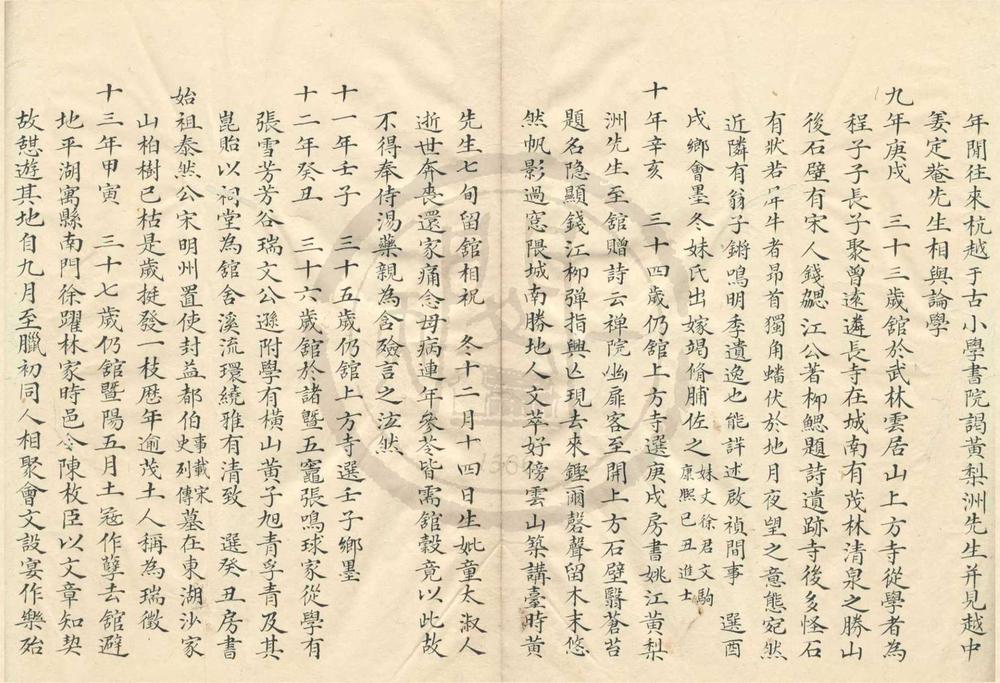 年閒往來杭越于古小學書院謁黃梨洲先生并見越中
姜定菴先生相與論學
九年庚戌 三十三歲館於武林雲居山上方寺從學者為
程子子長子聚曾遠遴長寺在城南有茂林清泉之勝山
後石壁有宋人錢勰江公著柳鰓題詩遺跡寺後多怪石
有狀若牛者昂首獨角蟠伏於地月夜望之意態宛然
近隣有翁子鏘鳴明季遺逸也能詳述啟禎間事 選酉
戌鄉會墨冬妹氏出嫁竭脩脯佐之妹丈徐君文駒康熙己丑進士
十年辛亥 三十四歲仍館上方寺選庚戌房書姚江黃梨
洲先生至舘贈詩云禅院幽扉客至開上方石壁翳蒼苔
題名隐顯錢江柳彈指興亡現去來鏗爾磬聲留木末悠
然帆影過窓隈城南勝地人文萃好傍雲山築講臺時黃
先生七旬留舘相祝 冬十二月十四日生妣童太淑人
逝世奔喪還家痛念母病連年參苓皆需舘穀竟以此故
不得奉侍湯藥親為含殮言之泣然
十一年壬子 三十五歲仍舘上方寺選壬子鄉墨
十二年癸丑 三十六歲舘於諸暨五竈張鳴球家從學有
張雪芳芳谷瑞文公遜附學有橫山黃子旭青孚青及其
崑貽以祠堂為舘舍溪流環繞雅有清致 選癸丑房書
始祖泰然公宋明州置使封益都伯事載宋史列傳墓在東湖沙家
山柏樹已枯是歲挺發一枝歷年逾茂土人稱為瑞徵
十三年甲寅 三十七歲仍舘暨陽五月土寇作孽去舘避
地平湖寓縣南門徐躍林家時邑令陳枚臣以文章知契
故憇遊其地自九月至臘初同人相聚會文設宴作樂殆